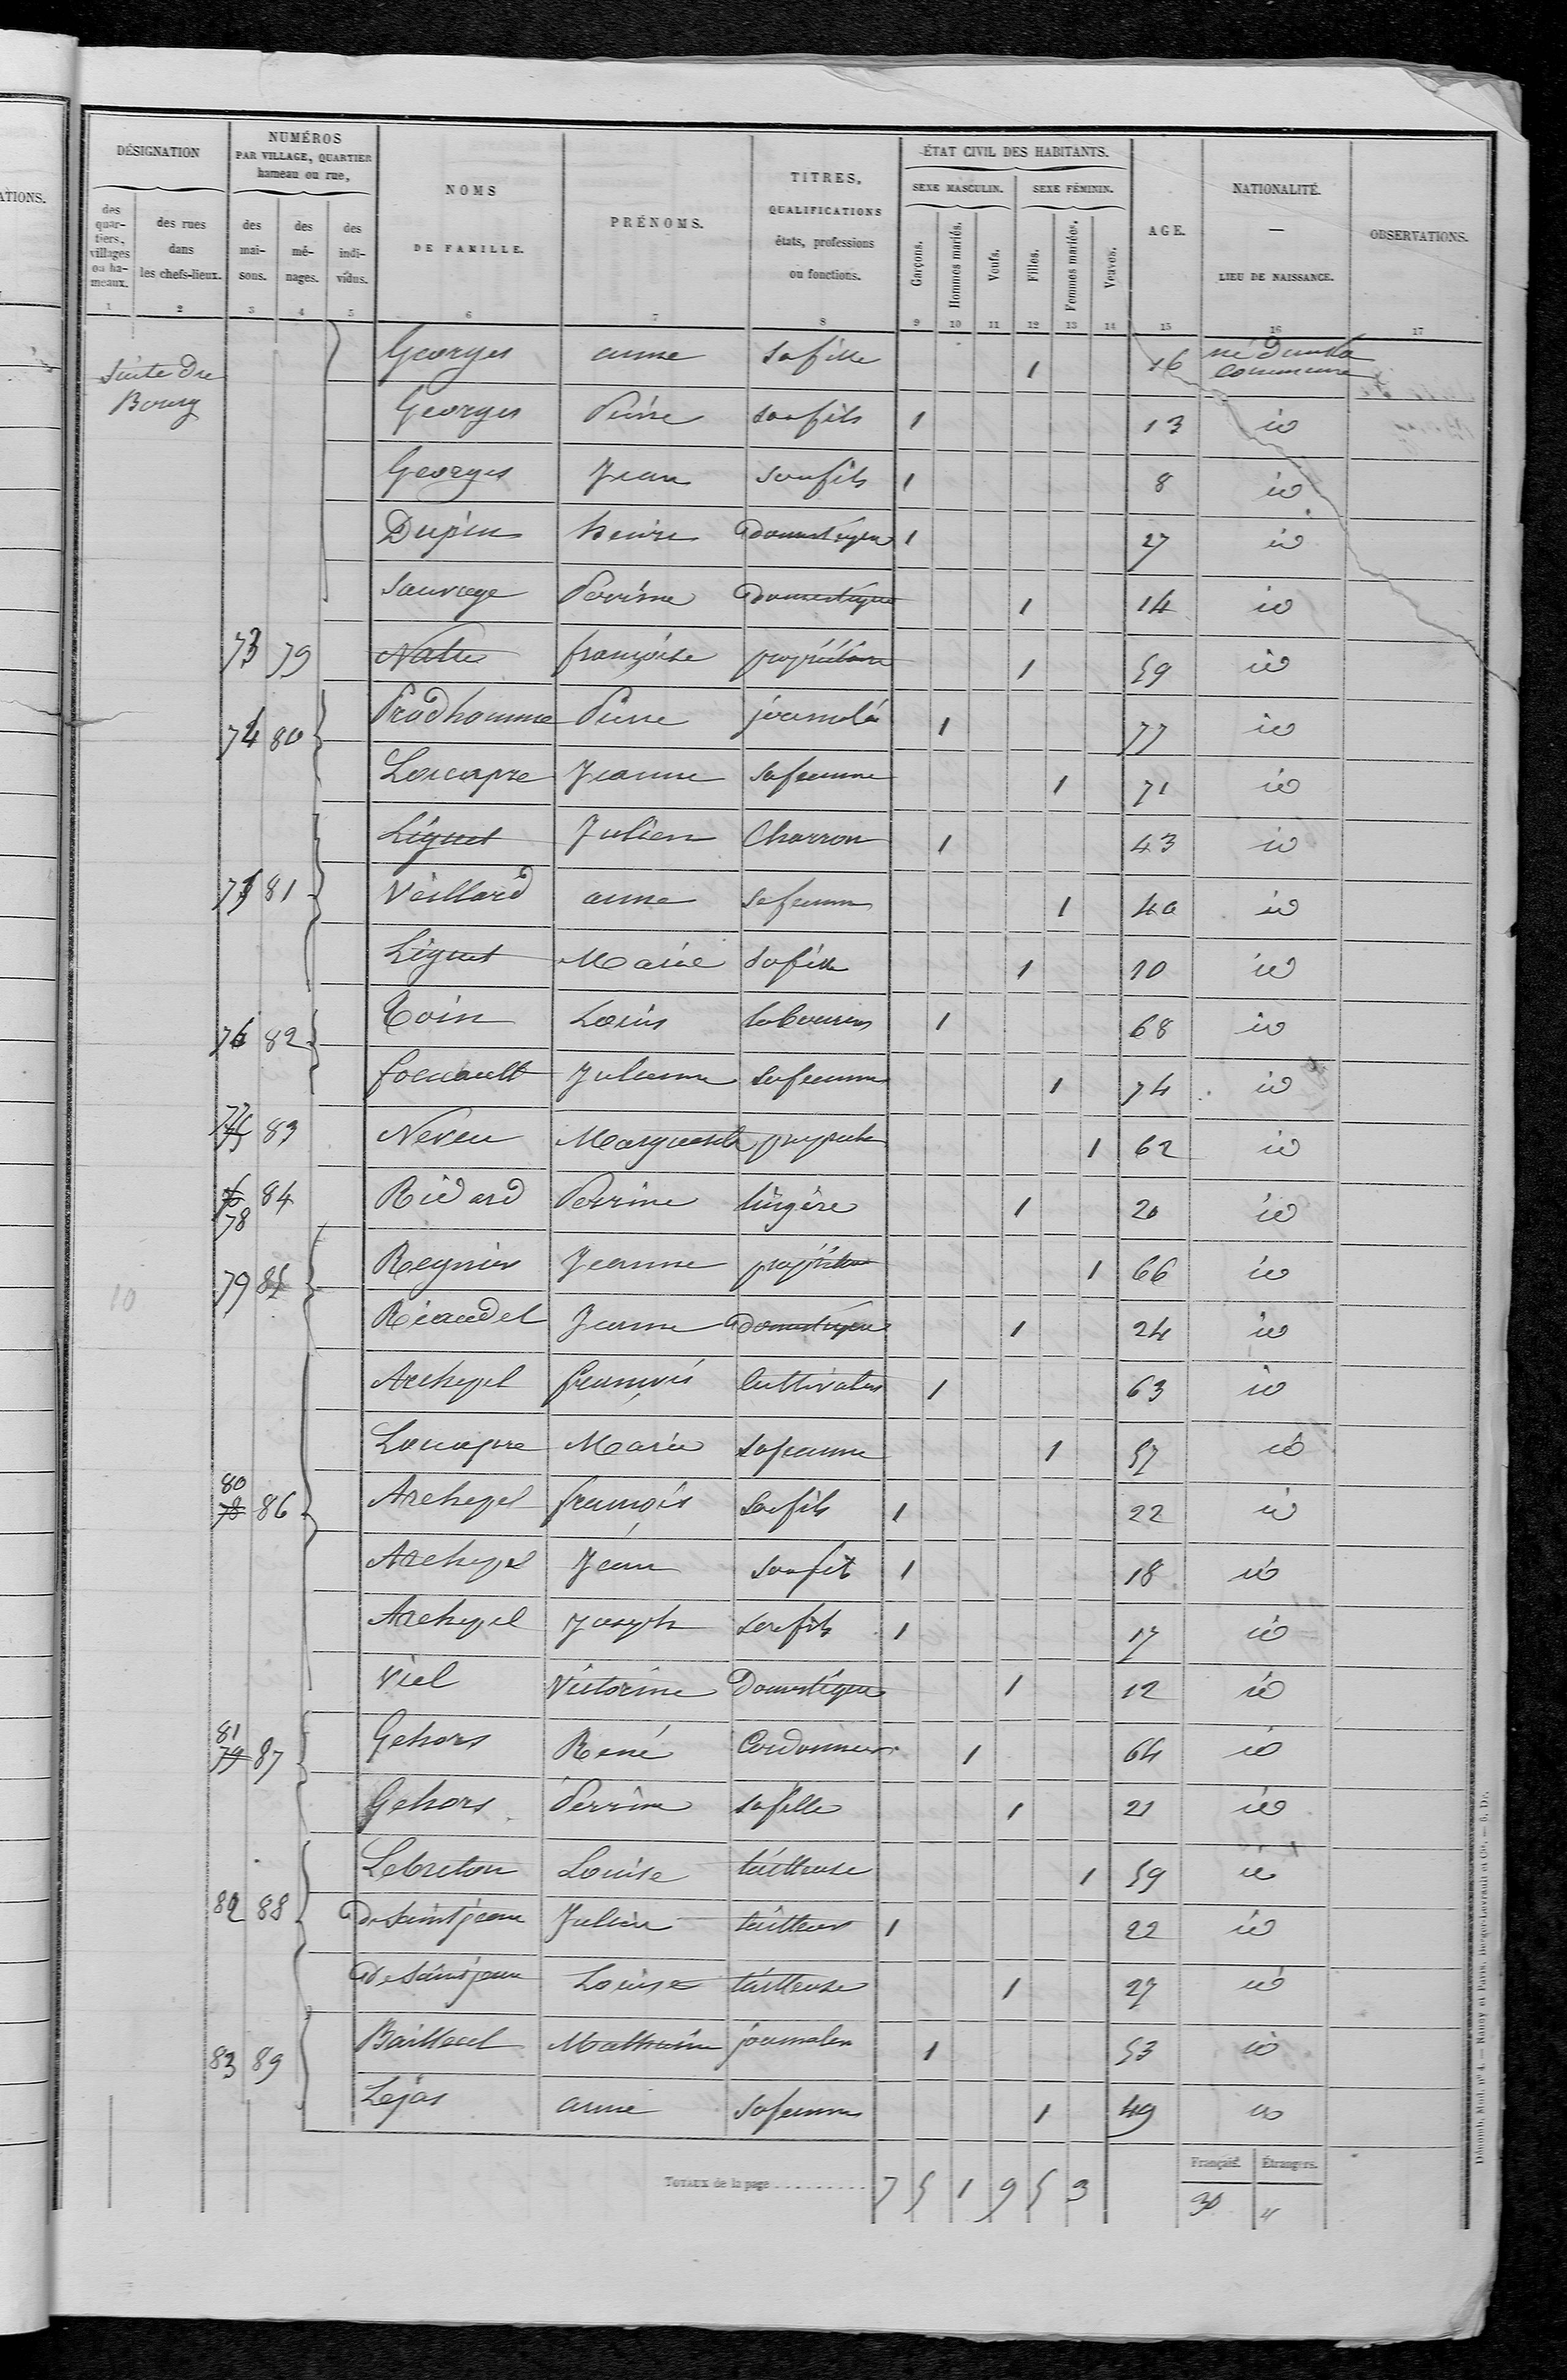 ATIONS.
DÉSIGNATION
NUMÉROS
PAR VILLAGE, QUARTIER
hameau ou rue,
des quartiers, villages ou hameaux.
des rues dans les chefs-lieux.
des maisons.
des ménages.
des individus.
NOMS
DE FAMILLE.
PRÉNOMS.
TITRES,
QUALIFICATIONS
états, professions
ou fonctions.
ÉTAT CIVIL DES HABITANTS.
SEXE MASCULIN. SEXE FÉMININ.
Garçons. Hommes mariés. Veufs. Filles. Femmes mariées. Veuves.
AGE.
NATIONALITÉ.
—
LIEU DE NAISSANCE.
OBSERVATIONS.
1 2 3 4 5 6 7 8 9 10 11 12 13 14 15 16 17
Suite du Bourg
Georges anne sa fille 1 16 né dans la commune
Georges Pierre son fils 1 13 id
Georges Jean son fils 1 8 id
Dupin 1 27 id
Sauvage Perrine Domestique 1 14 id
73 79 françoise propriétaire 1 59 id
74 80 Prodhomme Pierre 1 77 id
Loucapre Jeanne sa femme 1 71 id
Liguet Julien Charron 1 43 id
75 81 Veillard anne sa femme 1 40 id
Liguet Marie sa fille 1 10 id
76 82 Toin Louis laboureur 1 68 id
foucault Julienne sa femme 1 74 id
77 83 Neveu Marguerite 1 62 id
78 84 Ridard Perrine lingère 1 20 id
79 85 Regnier Jeanne 1 66 id
Riaudel Jeanne Domestique 1 24 id
françois Cultivateur 1 63 id
Loucapre Marie sa femme 1 57 id
80 86 françois son fils 1 22 id
Jean son fils 1 18 id
Joseph son fils 1 17 id
Viel Victorine Domestique 1 12 id
81 87 Gehors René Cordonnier 1 64 id
Gehors Perrine sa fille 1 21 id
Lebreton Louise tailleuse 1 59 id
82 88 De Saint jean Julien tailleur 1 22 id
De Saint jean Louise tailleuse 1 27 id
83 89 Mathurin journalier 1 53 id
Lejas anne sa femme 1 49 id
10
TOTAUX de la page 7 5 1 9 5 3
Français. Étrangers.
30 "